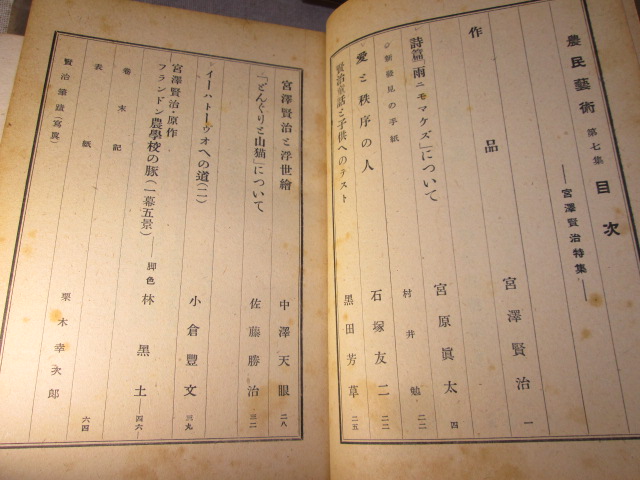 農民藝術 第七集 目次
——宮澤賢治特集——
作品 宮澤賢治 一
詩篇「雨ニモマケズ」について 宮原眞太 四
◇新發見の手紙 村井勉 二二
愛と秩序の人 石塚友二 二二
賢治童話と子供へのテスト 黒田芳草 二五
宮澤賢治と浮世繪 中澤天眼 二八
「どんぐりと山猫」について 佐藤勝治 三二
イーハトーヴオへの道(二) 小倉豐文 三九
宮澤賢治・原作
フランドン農學校の豚(一幕五景) 脚色 林黒土 四六
卷末記 六四
表紙 栗木幸次郎
賢治筆蹟(寫眞)